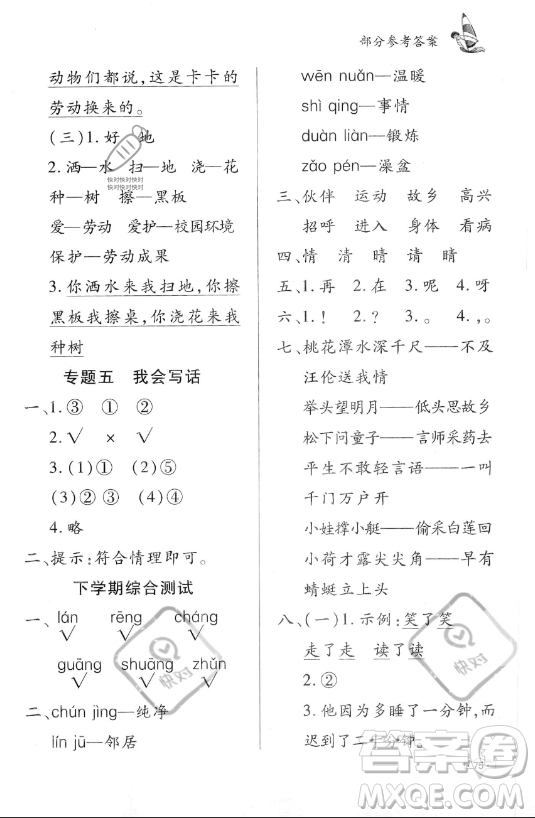 部分参考答案
动物们都说,这是卡卡的
劳动换来的。
(三)1.好 地
2.洒—水 扫—地 浇—花
种—树 擦—黑板
爱—劳动 爱护—校园环境
保护—劳动成果
3.你洒水来我扫地,你擦
黑板我擦桌,你浇花来我
种树
专题五 我会写话
一、1.③ ① ②
2.√ × √
3.(1)① (2)⑤
(3)②③ (4)④
4.略
二、提示:符合情理即可。
下学期综合测试
一、lán rēng cháng
√ √ √
guāng shuāng zhǔn
√ √ √
二、chún jìng—纯净
lín jū—邻居
wēn nuǎn—温暖
shì qing—事情
duàn liàn—锻炼
zǎo pén—澡盆
三、伙伴 运动 故乡 高兴
招呼 进入 身体 看病
四、情 清 晴 请 睛
五、1.再 2.在 3.呢 4.呀
六、1.! 2.? 3.。 4.,。
七、桃花潭水深千尺——不及
汪伦送我情
举头望明月——低头思故乡
松下问童子——言师采药去
平生不敢轻言语——一叫
千门万户开
小娃撑小艇——偷采白莲回
小荷才露尖尖角——早有
蜻蜓立上头
八、(一)1.示例:笑了笑
走了走 读了读
2.②
3.他因为多睡了一分钟,而
迟到了二十分钟。
快对快对快对
快对快对快对
快对
快对
答案圈
MXQE.COM